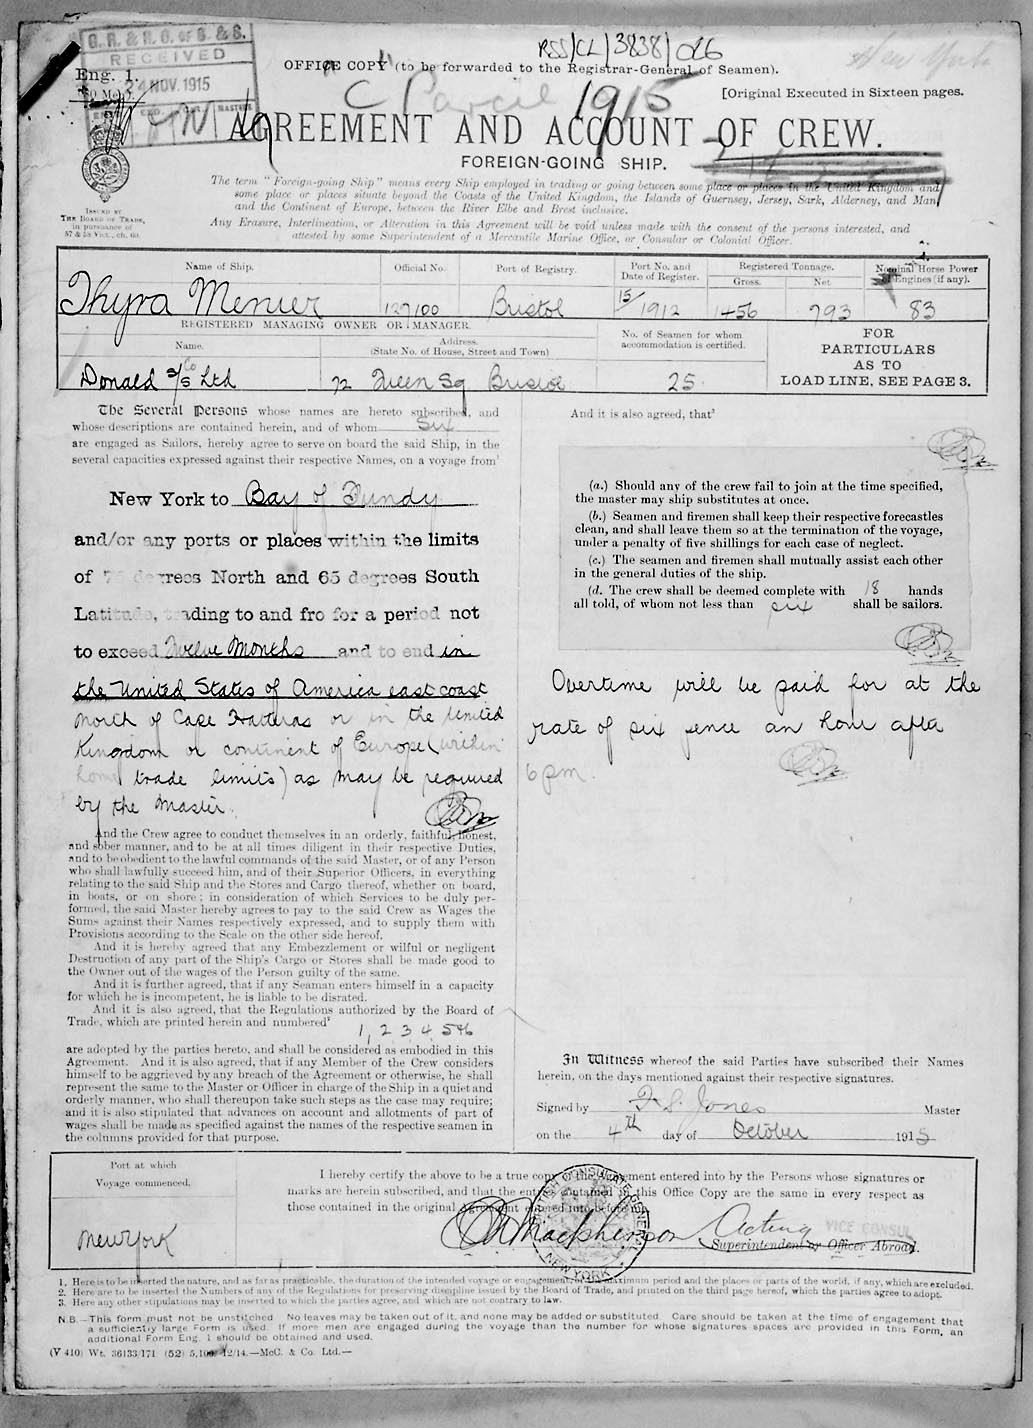 RSS/CL/3838/026
New York
G. R. & R. G. of S. & S.
RECEIVED
24 NOV. 1915
Eng. 1.
OFFICE COPY (to be forwarded to the Registrar-General of Seamen).
"C" Parcel 1915
[Original Executed in Sixteen pages.
AGREEMENT AND ACCOUNT OF CREW.
FOREIGN-GOING SHIP.
ISSUED BY
THE BOARD OF TRADE,
in pursuance of
57 & 58 Vict., ch. 60.
The term "Foreign-going Ship" means every Ship employed in trading or going between some place or places in the United Kingdom and
some place or places situate beyond the Coasts of the United Kingdom, the Islands of Guernsey, Jersey, Sark, Alderney, and Man
and the Continent of Europe, between the River Elbe and Brest inclusive.
Any Erasure, Interlineation, or Alteration in this Agreement will be void unless made with the consent of the persons interested, and
attested by some Superintendent of a Mercantile Marine Office, or Consular or Colonial Officer.
Name of Ship. Official No. Port of Registry. Port No. and Date of Register. Registered Tonnage. Gross. Net Nominal Horse Power of Engines (if any).
Thyra Menier 127100 Bristol 15/1912 1456 793 83
REGISTERED MANAGING OWNER OR MANAGER.
Name. Address. (State No. of House, Street and Town) No. of Seamen for whom accommodation is certified.
FOR
PARTICULARS
AS TO
LOAD LINE, SEE PAGE 3.
Donald S/S Co Ltd 72 Queen Sq Bristol 25
The Several Persons whose names are hereto subscribed, and
whose descriptions are contained herein, and of whom six
are engaged as Sailors, hereby agree to serve on board the said Ship, in the
several capacities expressed against their respective Names, on a voyage from¹
New York to Bay of Fundy
and/or any ports or places within the limits
of 75 degrees North and 65 degrees South
Latitude, trading to and fro for a period not
to exceed Twelve Months and to end in
the United States of America east coast
north of Cape Hatteras or in the United
Kingdom or continent of Europe (within
home trade limits) as may be required
by the Master.
And the Crew agree to conduct themselves in an orderly, faithful, honest,
and sober manner, and to be at all times diligent in their respective Duties,
and to be obedient to the lawful commands of the said Master, or of any Person
who shall lawfully succeed him, and of their Superior Officers, in everything
relating to the said Ship and the Stores and Cargo thereof, whether on board,
in boats, or on shore; in consideration of which Services to be duly per-
formed, the said Master hereby agrees to pay to the said Crew as Wages the
Sums against their Names respectively expressed, and to supply them with
Provisions according to the Scale on the other side hereof.
And it is hereby agreed that any Embezzlement or wilful or negligent
Destruction of any part of the Ship's Cargo or Stores shall be made good to
the Owner out of the wages of the Person guilty of the same.
And it is further agreed, that if any Seaman enters himself in a capacity
for which he is incompetent, he is liable to be disrated.
And it is also agreed, that the Regulations authorized by the Board of
Trade, which are printed herein and numbered²
1, 2, 3, 4, 5 & 6
are adopted by the parties hereto, and shall be considered as embodied in this
Agreement. And it is also agreed, that if any Member of the Crew considers
himself to be aggrieved by any breach of the Agreement or otherwise, he shall
represent the same to the Master or Officer in charge of the Ship in a quiet and
orderly manner, who shall thereupon take such steps as the case may require;
and it is also stipulated that advances on account and allotments of part of
wages shall be made as specified against the names of the respective seamen in
the columns provided for that purpose.
And it is also agreed, that³
(a.) Should any of the crew fail to join at the time specified,
the master may ship substitutes at once.
(b.) Seamen and firemen shall keep their respective forecastles
clean, and shall leave them so at the termination of the voyage,
under a penalty of five shillings for each case of neglect.
(c.) The seamen and firemen shall mutually assist each other
in the general duties of the ship.
(d. The crew shall be deemed complete with 18 hands
all told, of whom not less than six shall be sailors.
Overtime will be paid for at the
rate of six pence an hour after
6 pm.
In Witness whereof the said Parties have subscribed their Names
herein, on the days mentioned against their respective signatures.
Signed by F. S. Jones Master
on the 4th day of October 1915
Port at which
Voyage commenced.
New York
I hereby certify the above to be a true copy of the Agreement entered into by the Persons whose signatures or
marks are herein subscribed, and that the entries contained in this Office Copy are the same in every respect as
those contained in the original Agreement entered into before me
BRITISH CONSULATE GENERAL NEW YORK
Macpherson Acting VICE CONSUL
Superintendent or Officer Abroad.
1. Here is to be inserted the nature, and as far as practicable, the duration of the intended voyage or engagement, or the maximum period and the places or parts of the world, if any, which are excluded.
2. Here are to be inserted the Numbers of any of the Regulations for preserving discipline issued by the Board of Trade, and printed on the third page hereof, which the parties agree to adopt.
3. Here any other stipulations may be inserted to which the parties agree, and which are not contrary to law.
N.B.—This form must not be unstitched No leaves may be taken out of it, and none may be added or substituted. Care should be taken at the time of engagement that
a sufficiently large Form is used. If more men are engaged during the voyage than the number for whose signatures spaces are provided in this Form, an
additional Form Eng. 1 should be obtained and used.
(V 410) Wt. 36133/171 (52) 5,100 12/14.—McC. & Co. Ltd.—